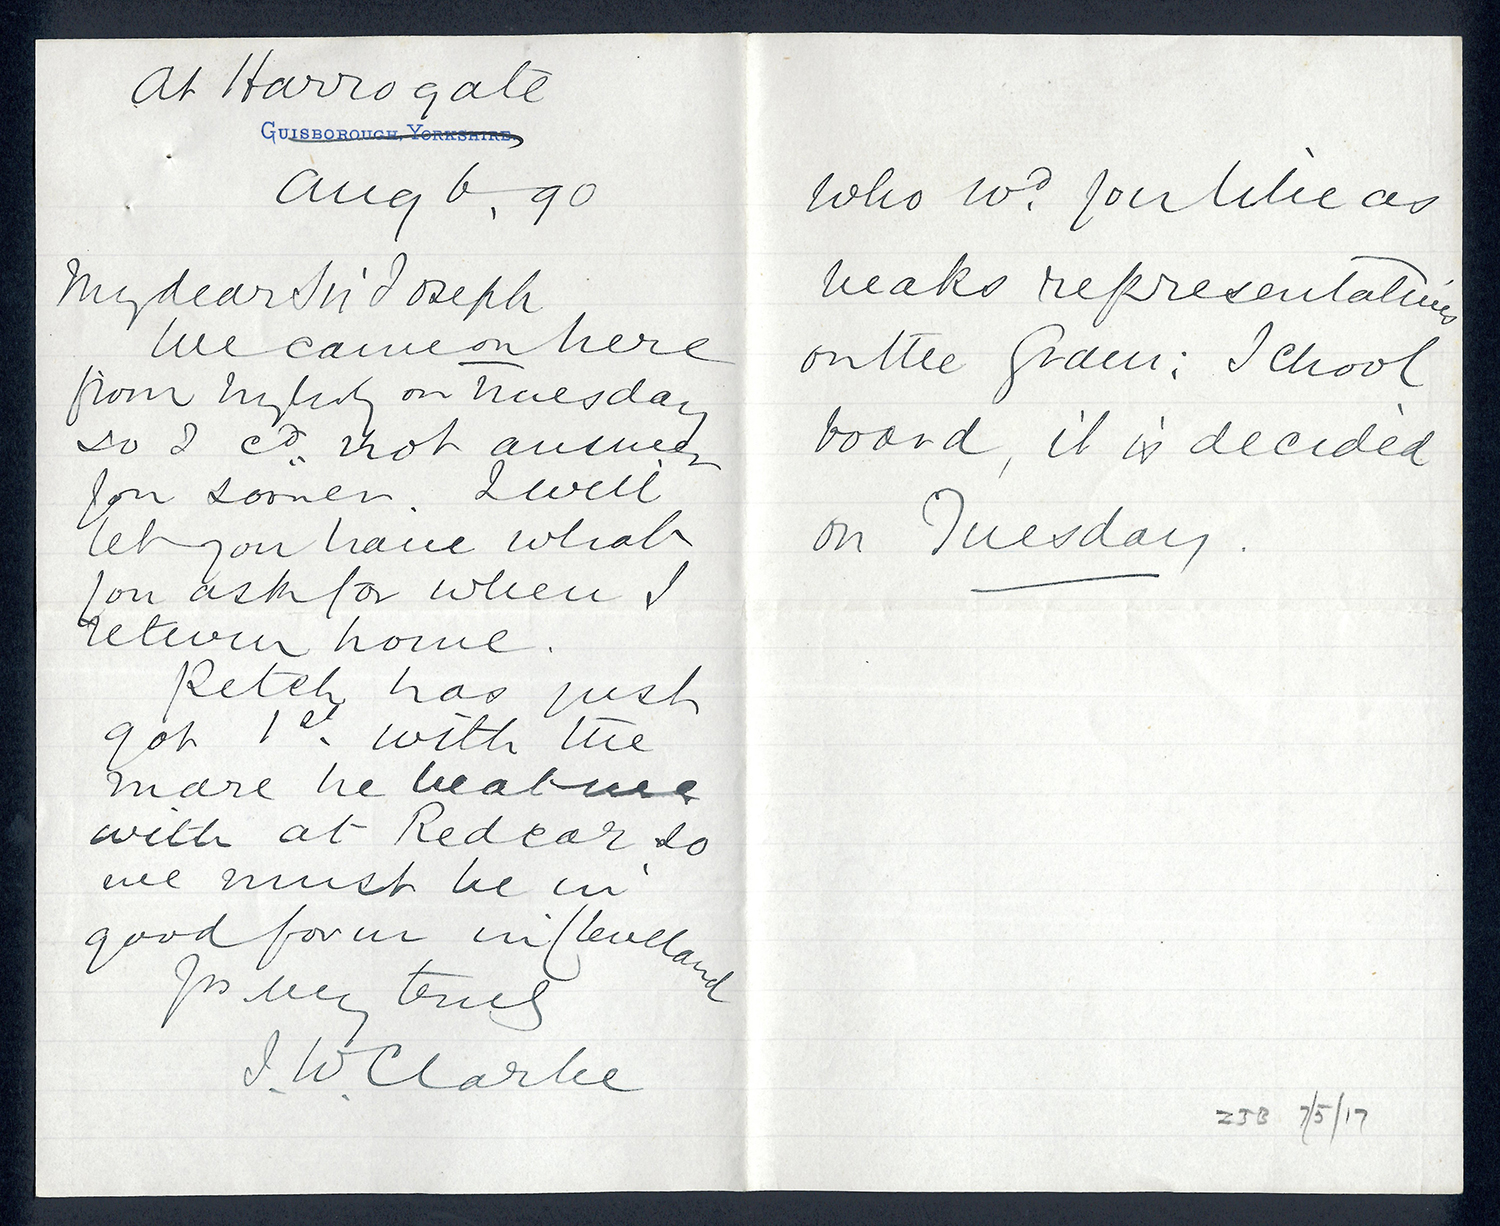 at Harrogate
GUISBOROUGH, YORKSHIRE.
Aug 6, 90
My dear Sir Joseph
We came on here
from on Tuesday
so I cd. not answer
you sooner. I will
let you have what
you ask for when I
return home.
Petch has just
got 1st. with the
mare he beat me
with at Redcar so
we must be in
good form in Cleveland
Yrs very truly
J. W. Clarke
who wd. you like as
Peaks representatives
on the Gram: School
board, it is decided
on Tuesday.
ZJB 7/5/17